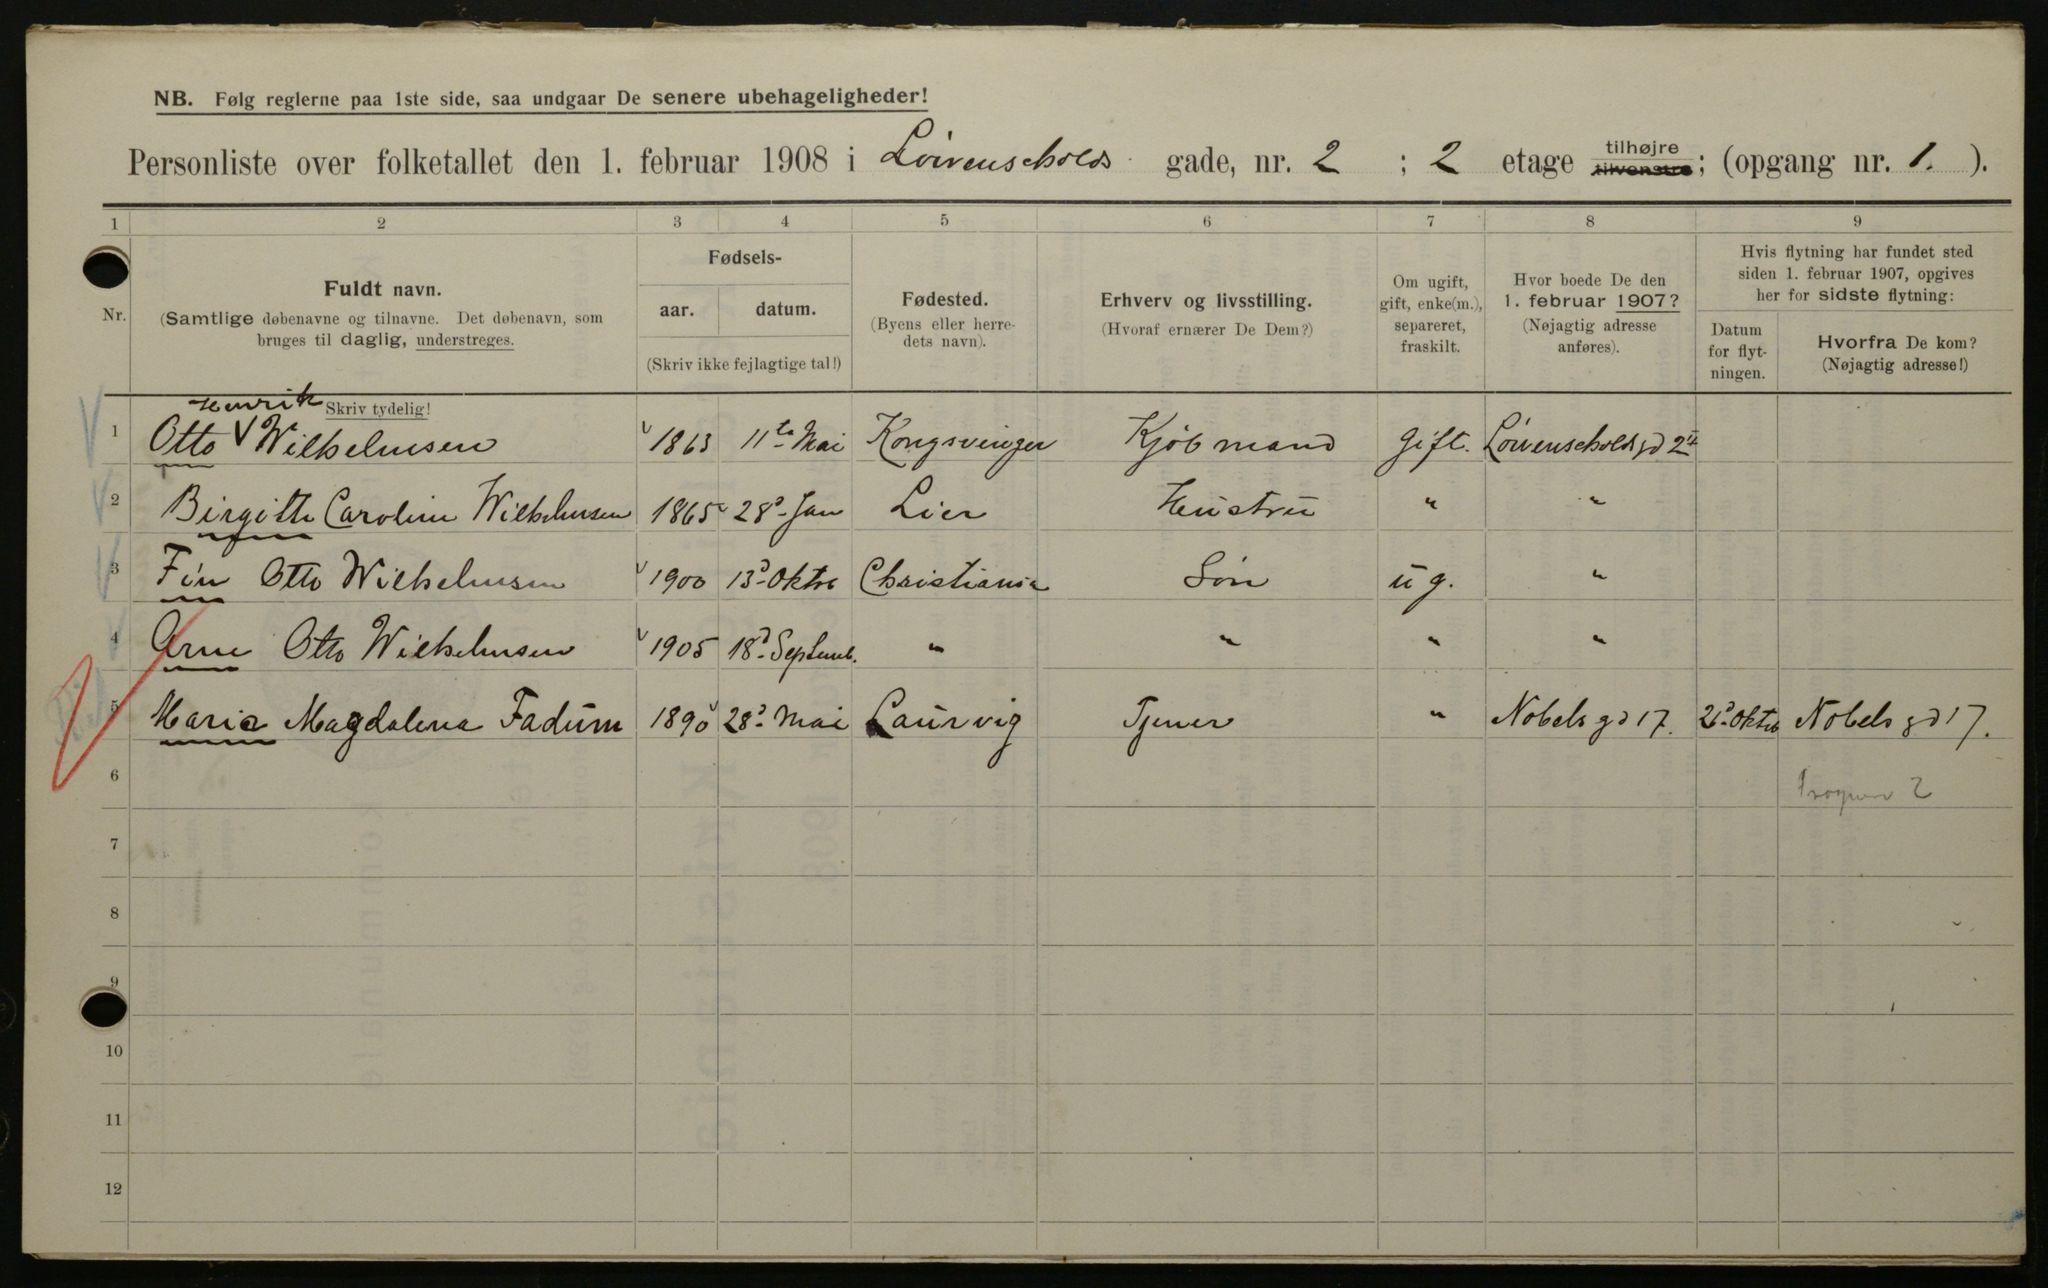 NB. Følg reglerne paa 1ste side, saa undgaar De senere ubehageligheder!
Personliste over folketallet den 1. februar 1908 i Löivenscholds gade, nr. 2 ; 2 etage tilhøjre tilvenstre; (opgang nr. 1. ).
1 2 3 4 5 6 7 8 9
Nr.
Fuldt navn.
(Samtlige døbenavne og tilnavne. Det døbenavn, som
bruges til daglig, understreges.
Fødsels-
aar. datum.
(Skriv ikke fejlagtige tal!)
Fødested.
(Byens eller herre-
dets navn).
Erhverv og livsstilling.
(Hvoraf ernærer De Dem?)
Om ugift,
gift, enke(m.),
separeret,
fraskilt.
Hvor boede De den
1. februar 1907?
(Nøjagtig adresse
anføres).
Hvis flytning har fundet sted
siden 1. februar 1907, opgives
her for sidste flytning:
Datum
for flyt-
ningen.
Hvorfra De kom?
(Nøjagtig adresse!)
Henrik Skriv tydelig!
1 Otto V Wilhelmsen 1863 11te Mai Kongsvinger Kjöbmand gift. Löivenscholdsgd 2II
2 Birgitte Caroline Wilhelmsen 1865 28d Jan Lier Hustru " "
3 Fin Otto Wilhelmsen 1900 13d Oktre Christiania Sön ug. "
4 Arne Otto Wilhelmsen 1905 18d Septemb. " " " "
5 Maria Magdalena Fadum 1890 28d Mai Laurvig Tjener " Nobelsgd 17. Oktob Nobelsgd 17.
6
7
8
9
10
11
12